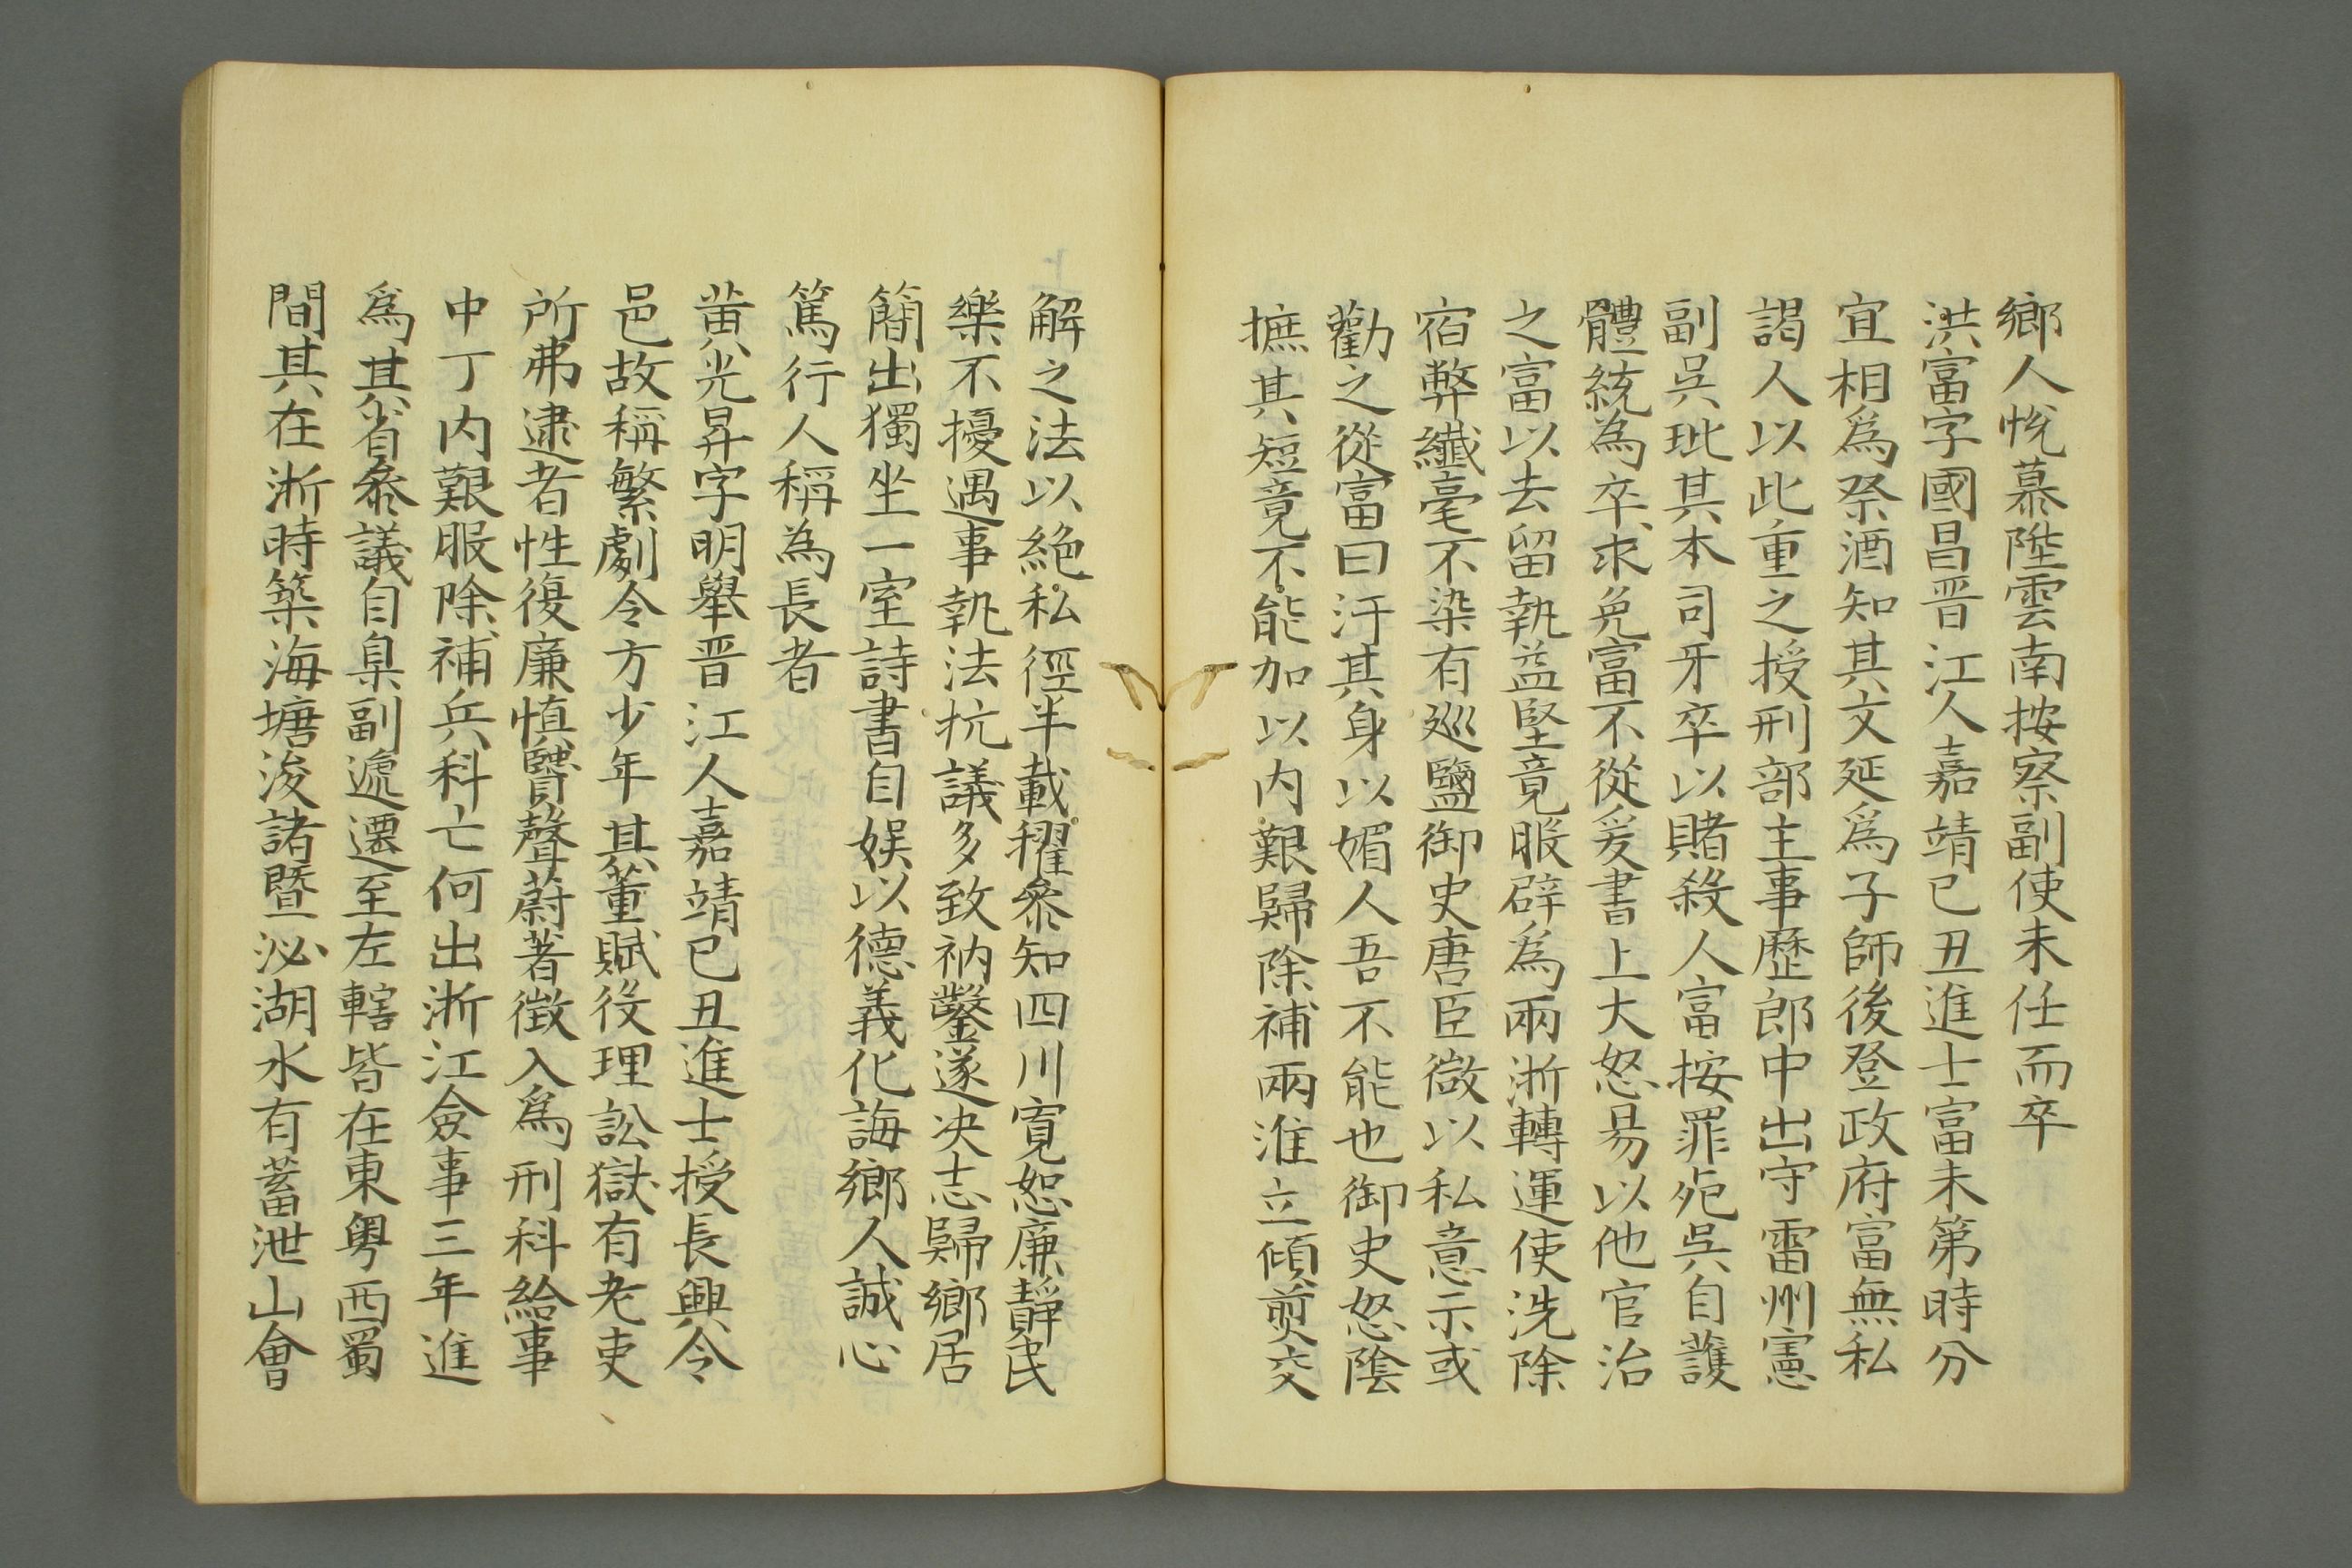 鄉人悅慕陞雲南按察副使未任而卒
洪富字國昌晋江人嘉靖已丑進士富未第時分
宜相爲祭酒知其文延爲子師後登政府富無私
謁人以此重之授刑部主事歷郎中出守雷州憲
副吳玭其本司牙卒以賭殺人富按罪死吳自護
體統為卒求免富不從爰書上大怒易以他官治
之富以去留執益堅竟服辟爲兩浙轉運使洗除
宿弊纖毫不染有巡鹽御史唐臣微以私意示或
勸之從富曰汙其身以媚人吾不能也御史怒陰
摭其短竟不能加以内艱歸除補兩淮立傾煎交
解之法以絶私徑半載擢叅知四川寬恕廉靜民
樂不擾遇事執法抗議多致衲鑿遂决志歸鄉居
簡出獨坐一室詩書自娱以德義化誨鄉人誠心
篤行人稱為長者
黄光昇字明舉晋江人嘉靖已丑進士授長興令
邑故稱繁劇令方少年其董賦役理訟獄有老吏
所弗逮者性復廉慎賢聲蔚著徵入爲刑科給事
中丁内艱服除補兵科亡何出浙江僉事三年進
爲其省叅議自臬副遞遷至左轄皆在東粤西蜀
間其在浙時築海塘浚諸暨泌湖水有蓄泄山會